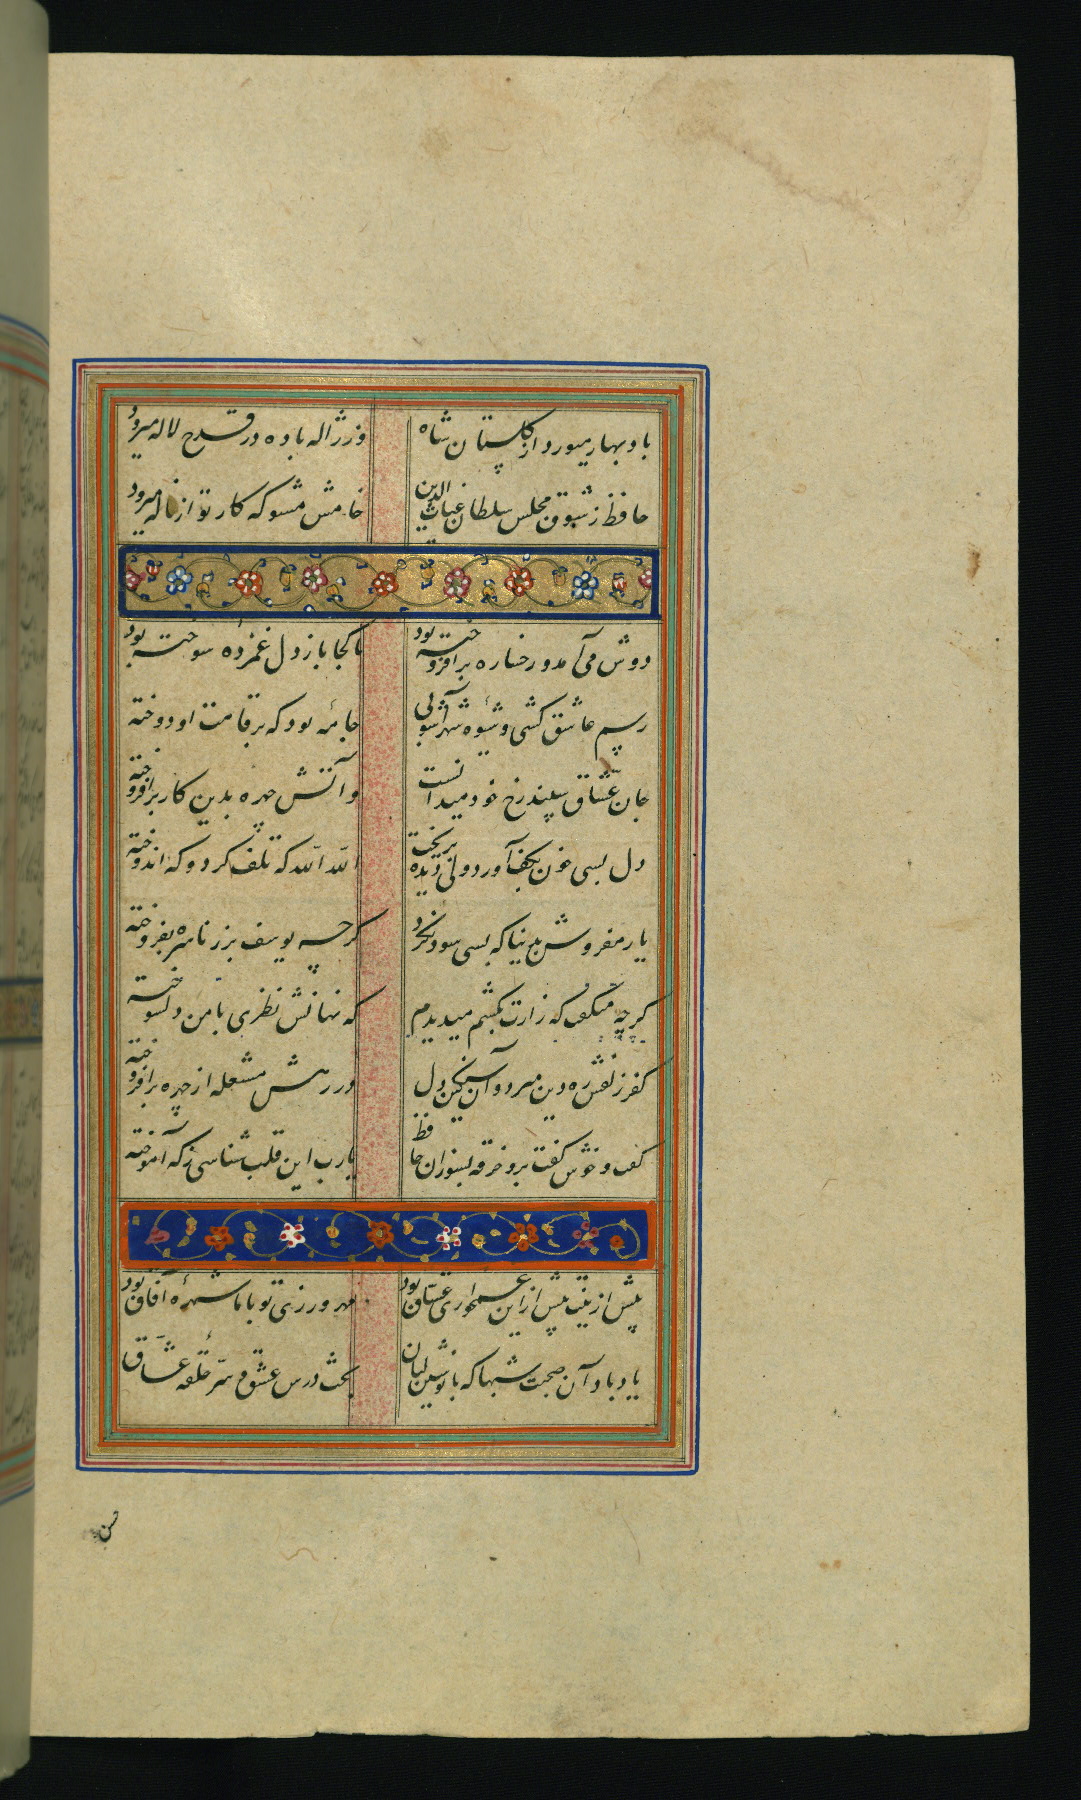 باد بهار میورزد از گلستان شاه
وز ژاله باده در قدح لاله میرود
حافظ ز شوق مجلس سلطان غیاث الدین
خامش مشو که کار تو از ناله میرود
دوش می‌آمد و رخساره برافروخته بود
تا کجا باز دل غمزدهٔ سوخته بود
رسم عاشق کشی و شیوهٔ شهرآشوبی
جامهٔ بود که بر قامت او دوخته
جان عشاق سپند رخ خود میدانست
و آتش چهره بدین کار برافروخته
دل بسی خون بکف آورد ولی دیده بریخت
الله الله که تلف کرد و که اندوخته
یار مفروش بدنیا که بسی سود نکرد
گرچه یوسف بزر ناسره بفروخته
گرچه میگفت که زارت بکشم میدیدم
که نهانش نظری با من دلسوخته
کفر زلفش ره دین میزد و آن سنگین دل
در رهش مشعله از چهره برافروخته
گفت و خوش گفت برو خرقه بسوزان حافظ
یارب این قلب شناسی ز که آموخته
پیش ازینت بیش از این غمخواری عشاق بود
مهر ورزی تو با ما شهرهٔ آفاق بود
یاد باد آن صحبت شبها که با نوشین لبان
بحث درس عشق و سرّ حلقهٔ عشاق